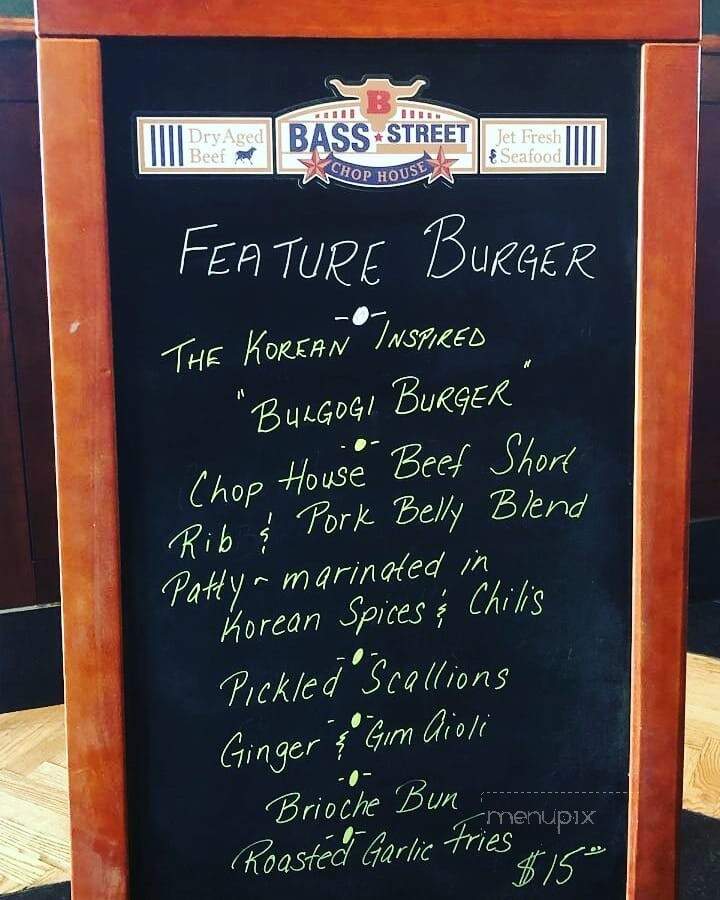 Dry Aged
Beef
B
BASS STREET
CHOP HOUSE
Jet Fresh
& Seafood
FEATURE BURGER
THE KOREAN INSPIRED
"BULGOGI BURGER"
Chop House Beef Short
Rib & Pork Belly Blend
Patty - marinated in
Korean Spices & Chilis
Pickled Scallions
Ginger & Gim Aioli
Brioche Bun
Roasted Garlic Fries
$15.00
menupix